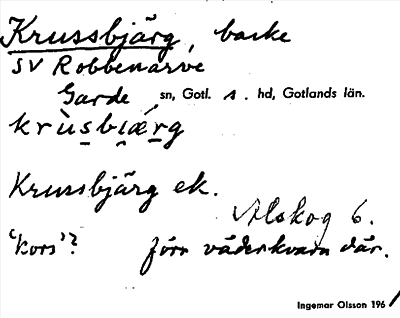 Krussbjärg, backe
SV Robbenarve
Garde sn, Gotl. s. hd, Gotlands län.
krùs̲bi̯ǽr̲g
Krussbjärg ek.
Alskog 6.
'kors'? förr väderkvarn där.
Ingemar Olsson 196